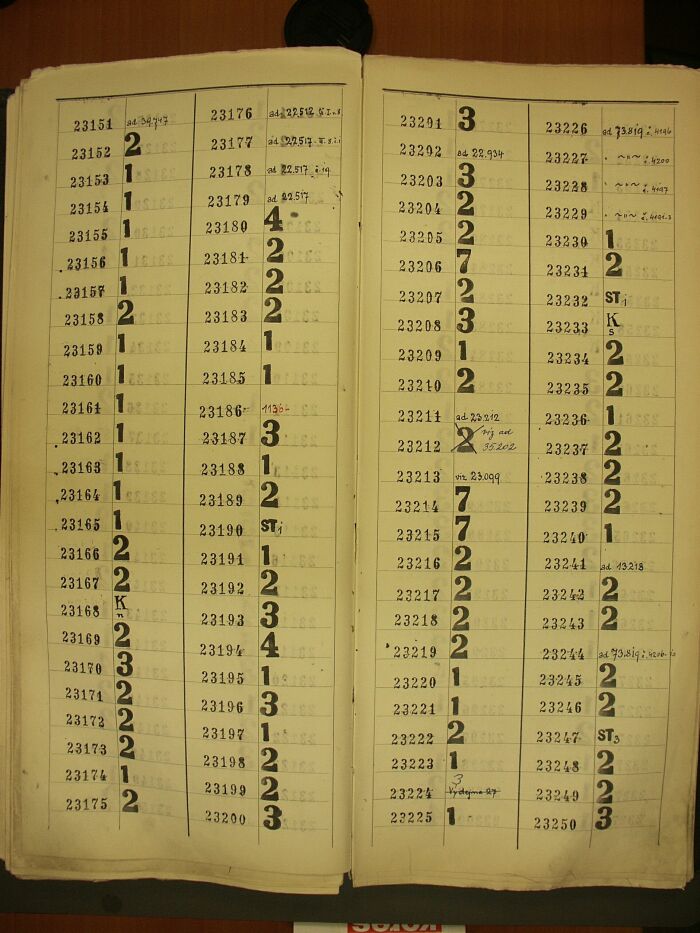 23151 ad 39747
23152 2
23153 1
23154 1
23155 1
23156 1
23157 1
23158 2
23159 1
23160 1
23161 1
23162 1
23163 1
23164 1
23165 1
23166 2
23167 2
23168 K n
23169 2
23170 3
23171 2
23172 2
23173 2
23174 1
23175 2
23176 ad 22.512
23177 ad 22.517
23178 ad 22.517 č.19
23179 ad 22.517
23180 4
23181 2
23182 2
23183 2
23184 1
23185 1
23186 1136-
23187 3
23188 1
23189 2
23190 STi
23191 1
23192 2
23193 3
23194 4
23195 1
23196 3
23197 1
23198 2
23199 2
23200 3
23201 3
23202 ad 22.934
23203 3
23204 2
23205 2
23206 7
23207 2
23208 3
23209 1
23210 2
23211 ad 23.212
23212 2 viz ad 35.202
23213 viz 23.099
23214 7
23215 7
23216 2
23217 2
23218 2
23219 2
23220 1
23221 1
23222 2
23223 1
23224 3 Výdejna 27
23225 1
23226 ad 73.819 č.4196
23227 " ~"~ č.4200
23228 " ~"~ č.4197
23229 " ~"~
23230 1
23231 2
23232 STi
23233 K s
23234 2
23235 2
23236 1
23237 2
23238 2
23239 2
23240 1
23241 ad 13.218
23242 2
23243 2
23244 ad 73.819 č.4206
23245 2
23246 2
23247 ST3
23248 2
23249 2
23250 3